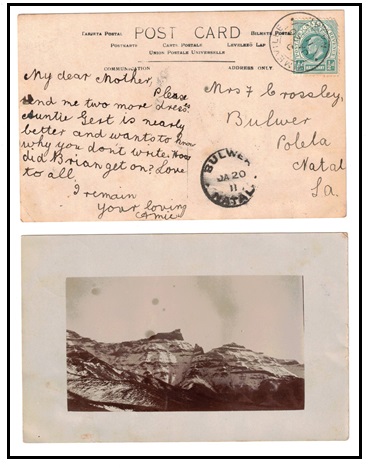 CARUTA POSTAL
POST CARD
BILHETE POSTAL
POSTKARTE
CARTE POSTALE
LEVELEZŐ LAP
UNION POSTALE UNIVERSELLE
COMMUNICATION
ADDRESS ONLY
My dear Mother,
Please
send me two more dresses
Auntie Gert is nearly
better and wants to know
why you don't write. How
did Brian get on? Love
to all.
I remain
your loving
Amie
Mrs F Crossley,
Bulwer
Polela
Natal
Sa.
BULWER
JA 20
11
NATAL